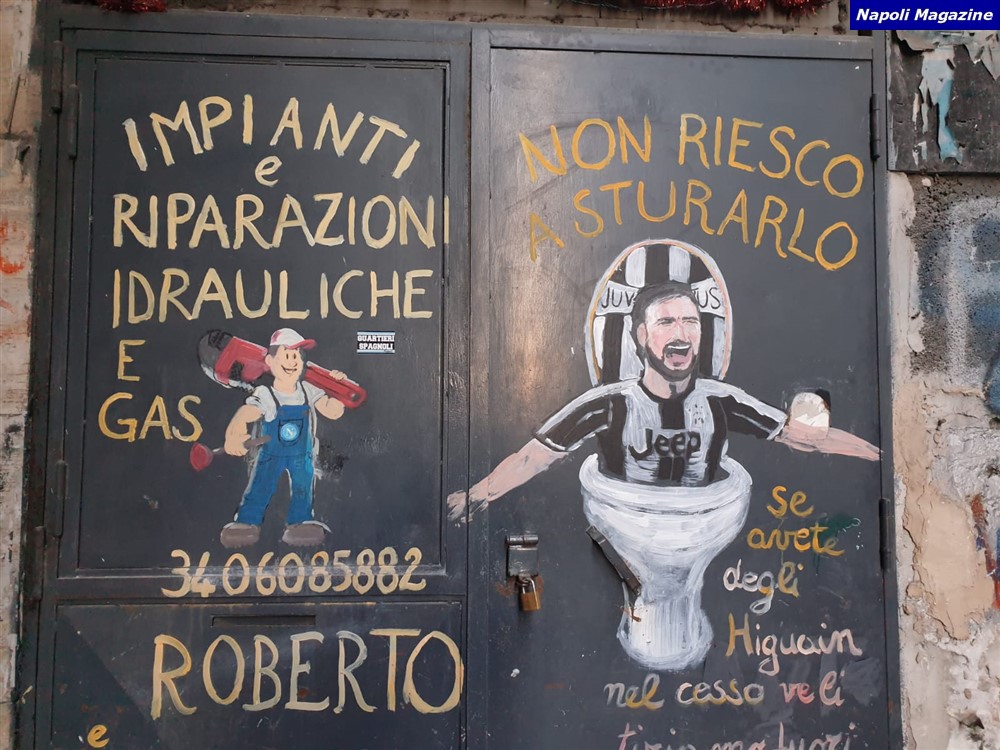 Napoli Magazine
IMPIANTI
e
RIPARAZIONI
IDRAULICHE
E
GAS
QUARTIERI
SPAGNOLI
N
3406085882
ROBERTO
e
NON RIESCO
A STURARLO
JUVENTUS
Jeep
se
avete
degli
Higuain
nel cesso veli
tiriamo fuori